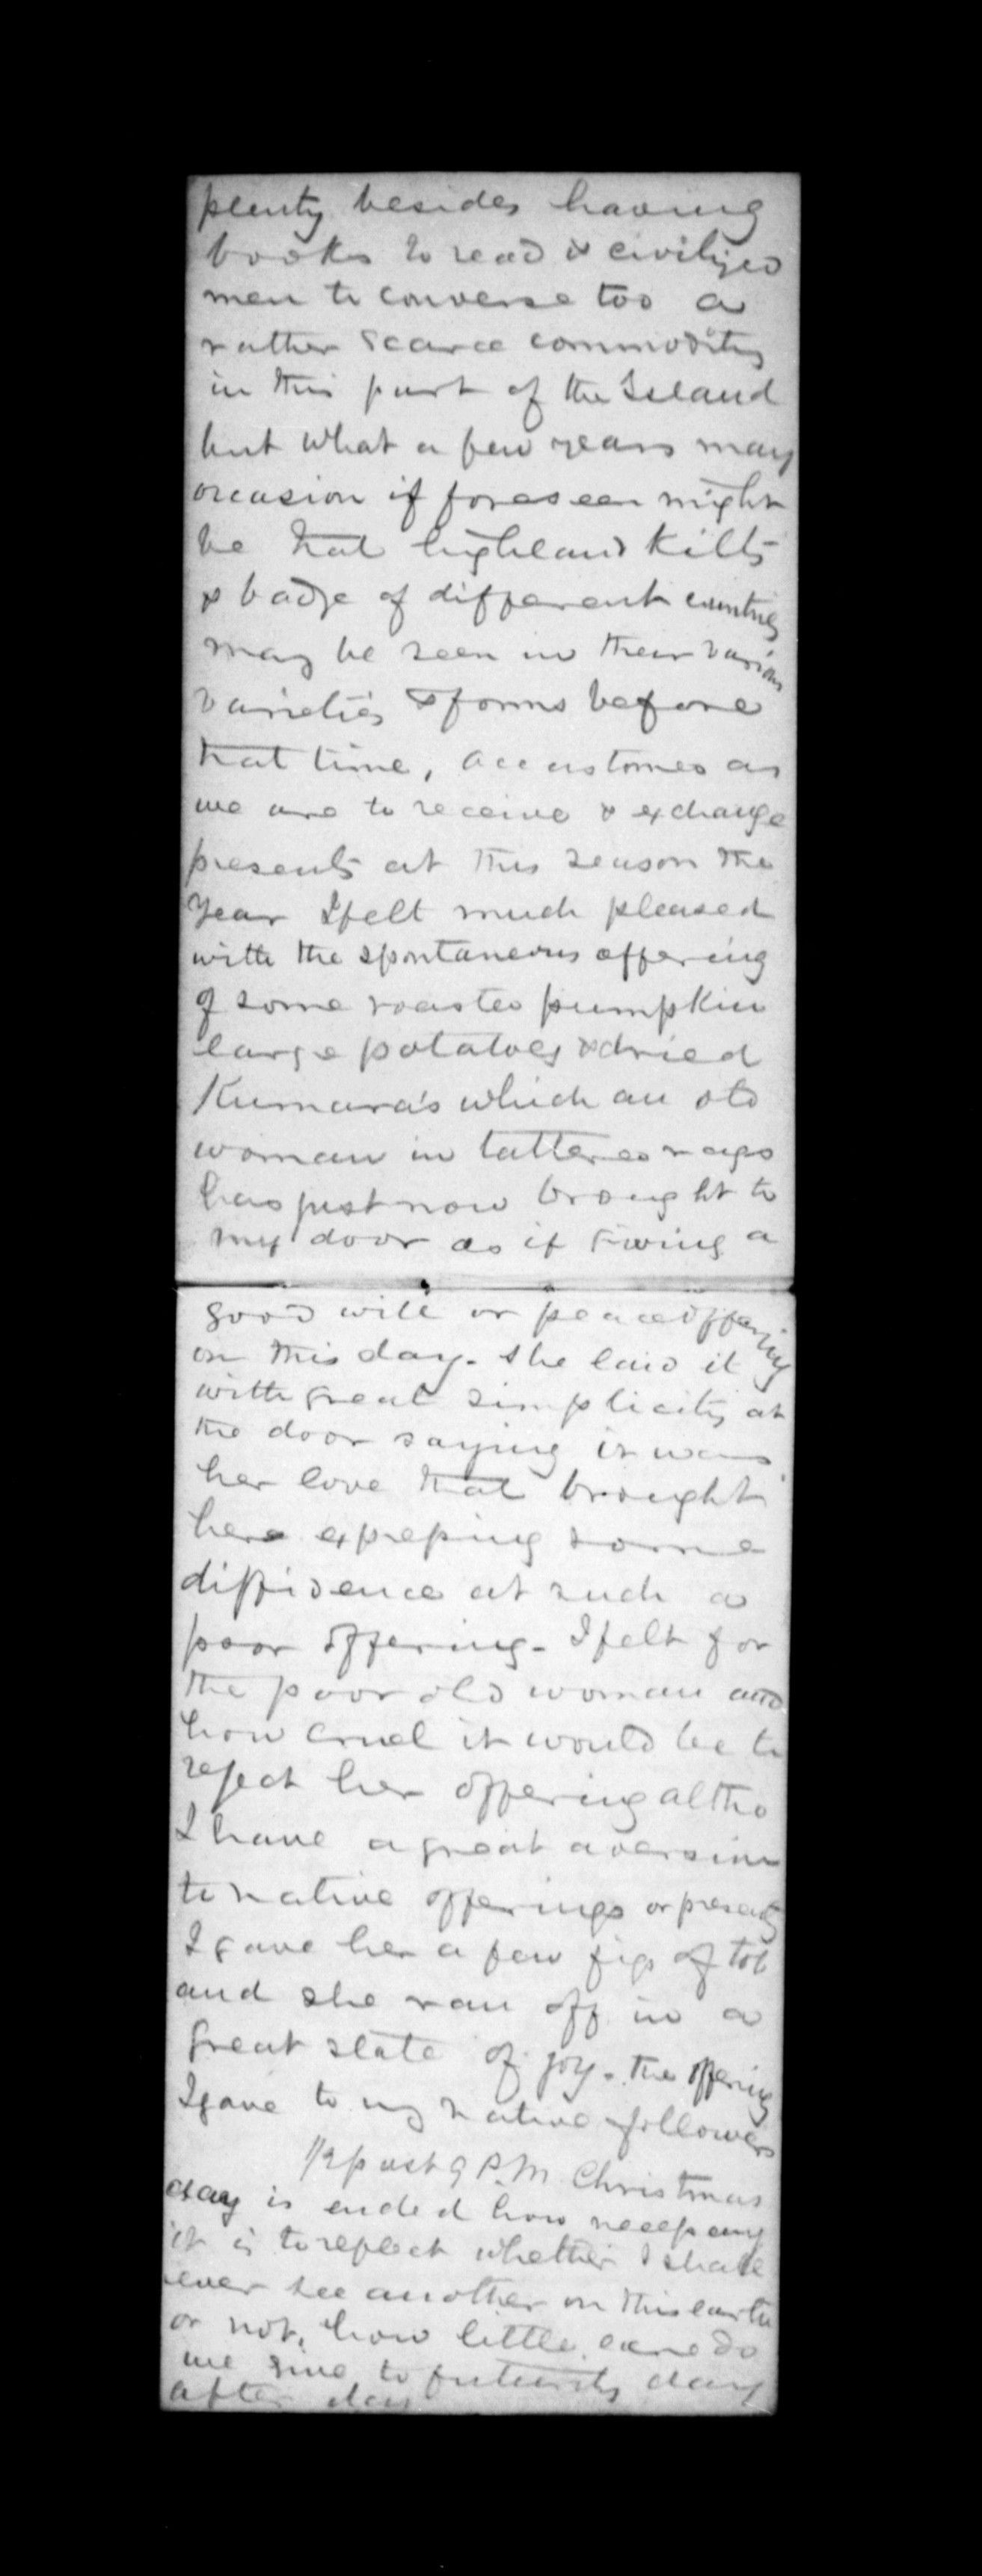 plenty besides having
books to read & civilized
men to converse too a
rather scarce commodity
in this part of the Island
but what a few years may
occasion if foreseen might
be that highland Kilts
& badge of different countries
may be seen in their various
varieties & forms before
that time, accustomed as
we are to receive & exchange
presents at this season the
year I felt much pleased
with the spontaneous offering
of some roasted pumpkin
large potatoes & dried
Kumara's which an old
woman in tattered rags
has just now brought to
my door as if giving a
good will or peace offering
on this day. She laid it
with great simplicity at
the door saying it was
her love that brought
here expressing some
diffidence at such a
poor offering - I felt for
the poor old woman and
how cruel it would be to
reject her offering altho
I have a great aversion
to native offerings or presents
I gave her a few figs of tob
and she ran off in a
great state of joy. The offering
I gave to my native followers
1/2 past 9 P.M. Christmas
day is ended how
it is to reflect whether I shall
ever see another on this earth
or not, how little care do
we give to futurity day
after day